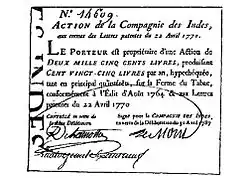 N.º 14609.
ACTION de la Compagnie des Indes,
aux termes des Lettres patentes du 22 Avril 1770.
LE PORTEUR est propriétaire d'une Action de
DEUX MILLE CINQ CENTS LIVRES, produisant
CENT VINGT-CINQ LIVRES par an, hypothéquée,
tant en principal qu'intérêts, sur la Ferme du Tabac,
conformément à l'Édit d'Août 1764 & aux Lettres
patentes du 22 Avril 1770
Signé pour la COMPAGNIE DES INDES,
en vertu de la Délibération du